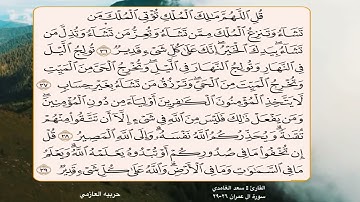 قُلِ اللَّهُمَّ مَالِكَ الْمُلْكِ تُؤْتِي الْمُلْكَ مَن
تَشَاءُ وَتَنزِعُ الْمُلْكَ مِمَّن تَشَاءُ وَتُعِزُّ مَن تَشَاءُ وَتُذِلُّ مَن
تَشَاءُ بِيَدِكَ الْخَيْرُ إِنَّكَ عَلَىٰ كُلِّ شَيْءٍ قَدِيرٌ ٢٦ تُولِجُ اللَّيْلَ
فِي النَّهَارِ وَتُولِجُ النَّهَارَ فِي اللَّيْلِ وَتُخْرِجُ الْحَيَّ مِنَ الْمَيِّتِ
وَتُخْرِجُ الْمَيِّتَ مِنَ الْحَيِّ وَتَرْزُقُ مَن تَشَاءُ بِغَيْرِ حِسَابٍ ٢٧
لَّا يَتَّخِذِ الْمُؤْمِنُونَ الْكَافِرِينَ أَوْلِيَاءَ مِن دُونِ الْمُؤْمِنِينَ
وَمَن يَفْعَلْ ذَٰلِكَ فَلَيْسَ مِنَ اللَّهِ فِي شَيْءٍ إِلَّا أَن تَتَّقُوا مِنْهُمْ
تُقَاةً وَيُحَذِّرُكُمُ اللَّهُ نَفْسَهُ وَإِلَى اللَّهِ الْمَصِيرُ ٢٨ قُلْ
إِن تُخْفُوا مَا فِي صُدُورِكُمْ أَوْ تُبْدُوهُ يَعْلَمْهُ اللَّهُ وَيَعْلَمُ
مَا فِي السَّمَاوَاتِ وَمَا فِي الْأَرْضِ وَاللَّهُ عَلَىٰ كُلِّ شَيْءٍ قَدِيرٌ ٢٩
القارئ : سعد الغامدي
سورة ال عمران ٢٦-٢٩
حربيه العازمي